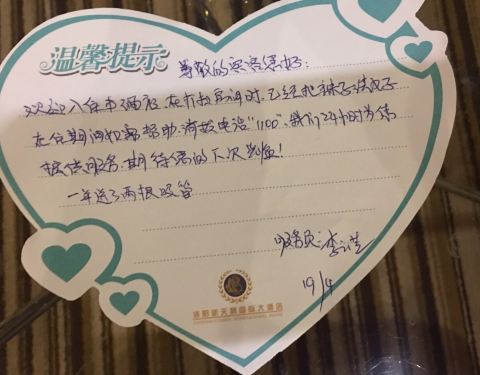 温馨提示 尊敬的宾客您好:
欢迎入住本酒店,在打扫房间时,已经把袜子
在住期间如需帮助,请拨电话"1100",我们24小时为您
提供服务,期待您的下次光临!
一年 送了两根吸管
服务员:李
19/4
洛阳 天 国际大酒店